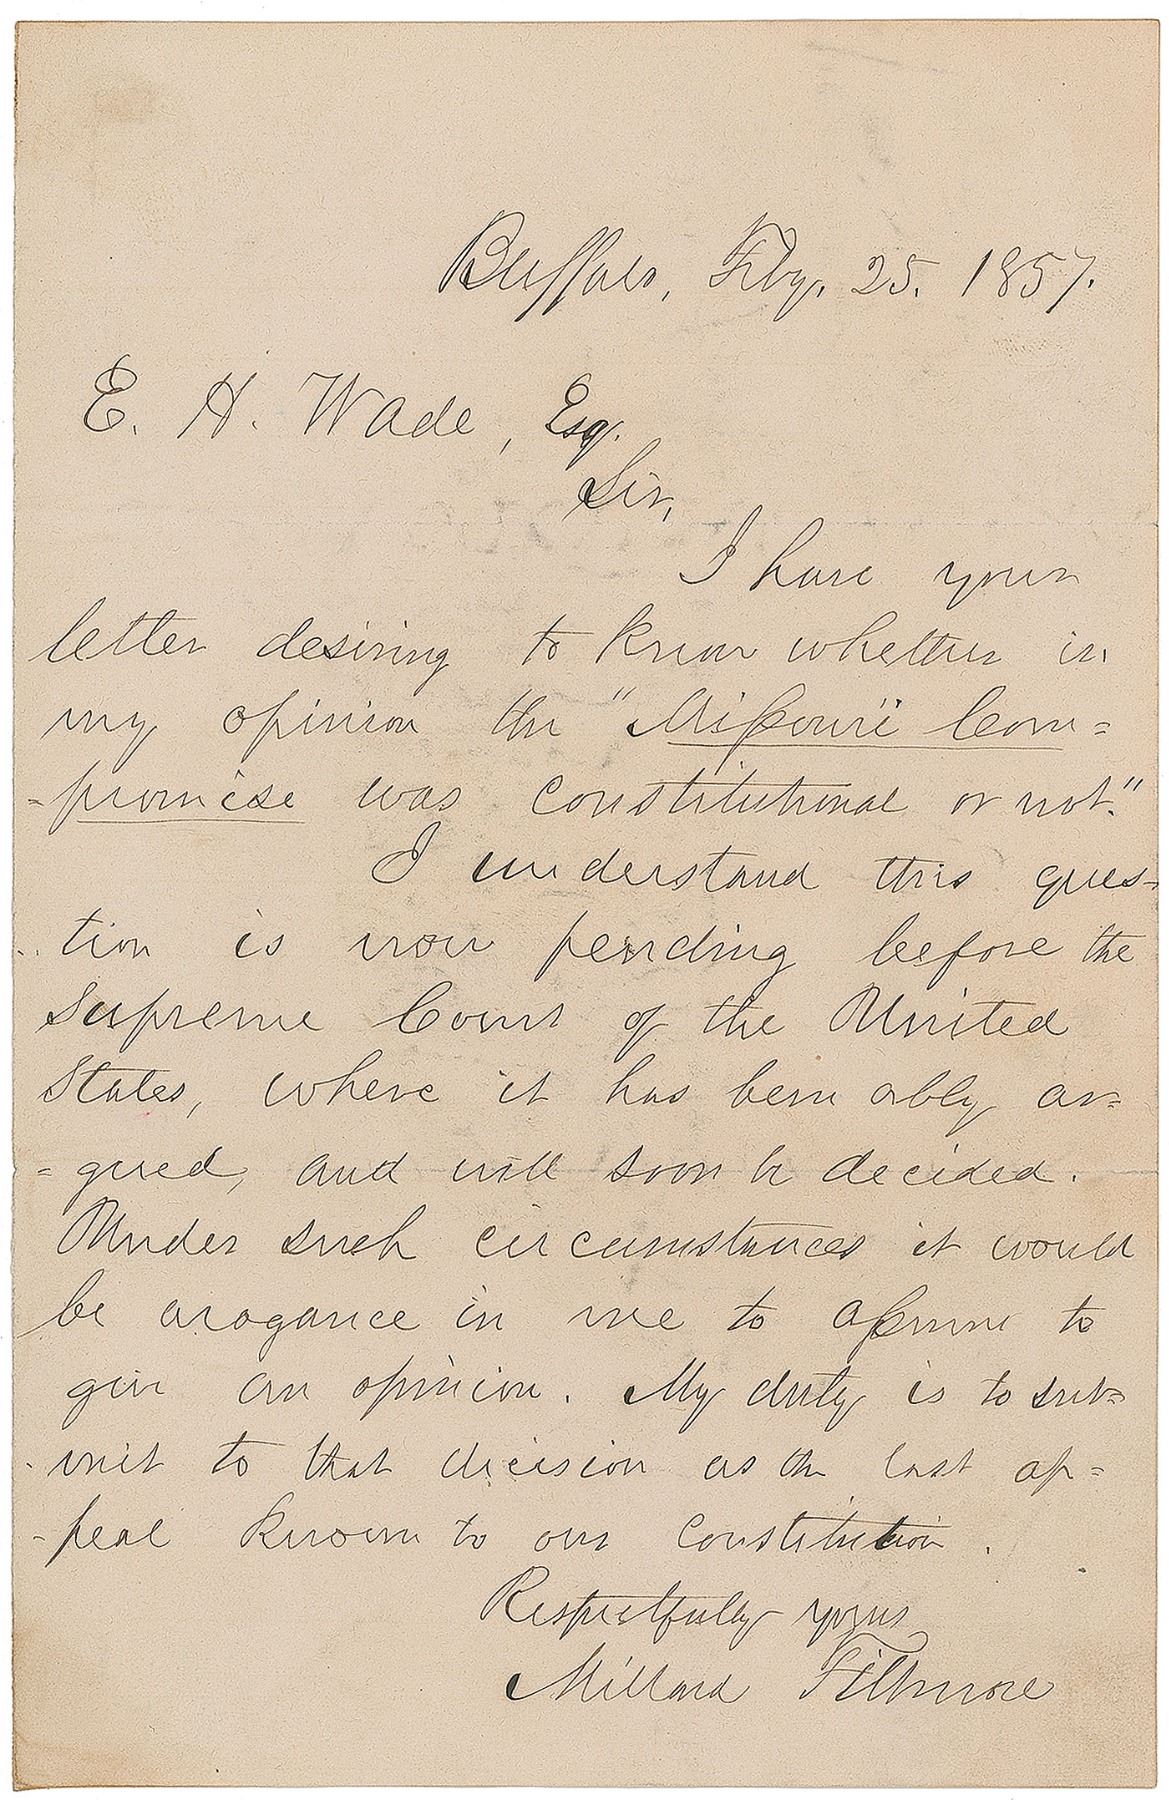 Buffalo, Feby. 25. 1857.
E. H. Wade, Esq.
Sir,
I have your
letter desiring to know whether in
my opinion the "Missouri Com=
=promise was constitutional or not."
I understand this ques=
=tion is now pending before the
Supreme Court of the United
States, where it has been ably ar=
=gued, and will soon be decided.
Under such circumstances it would
be arogance in me to assume to
give an opinion. My duty is to sub=
mit to that decision as the last ap=
=peal known to our constitution.
Respectfully yours
Millard Fillmore